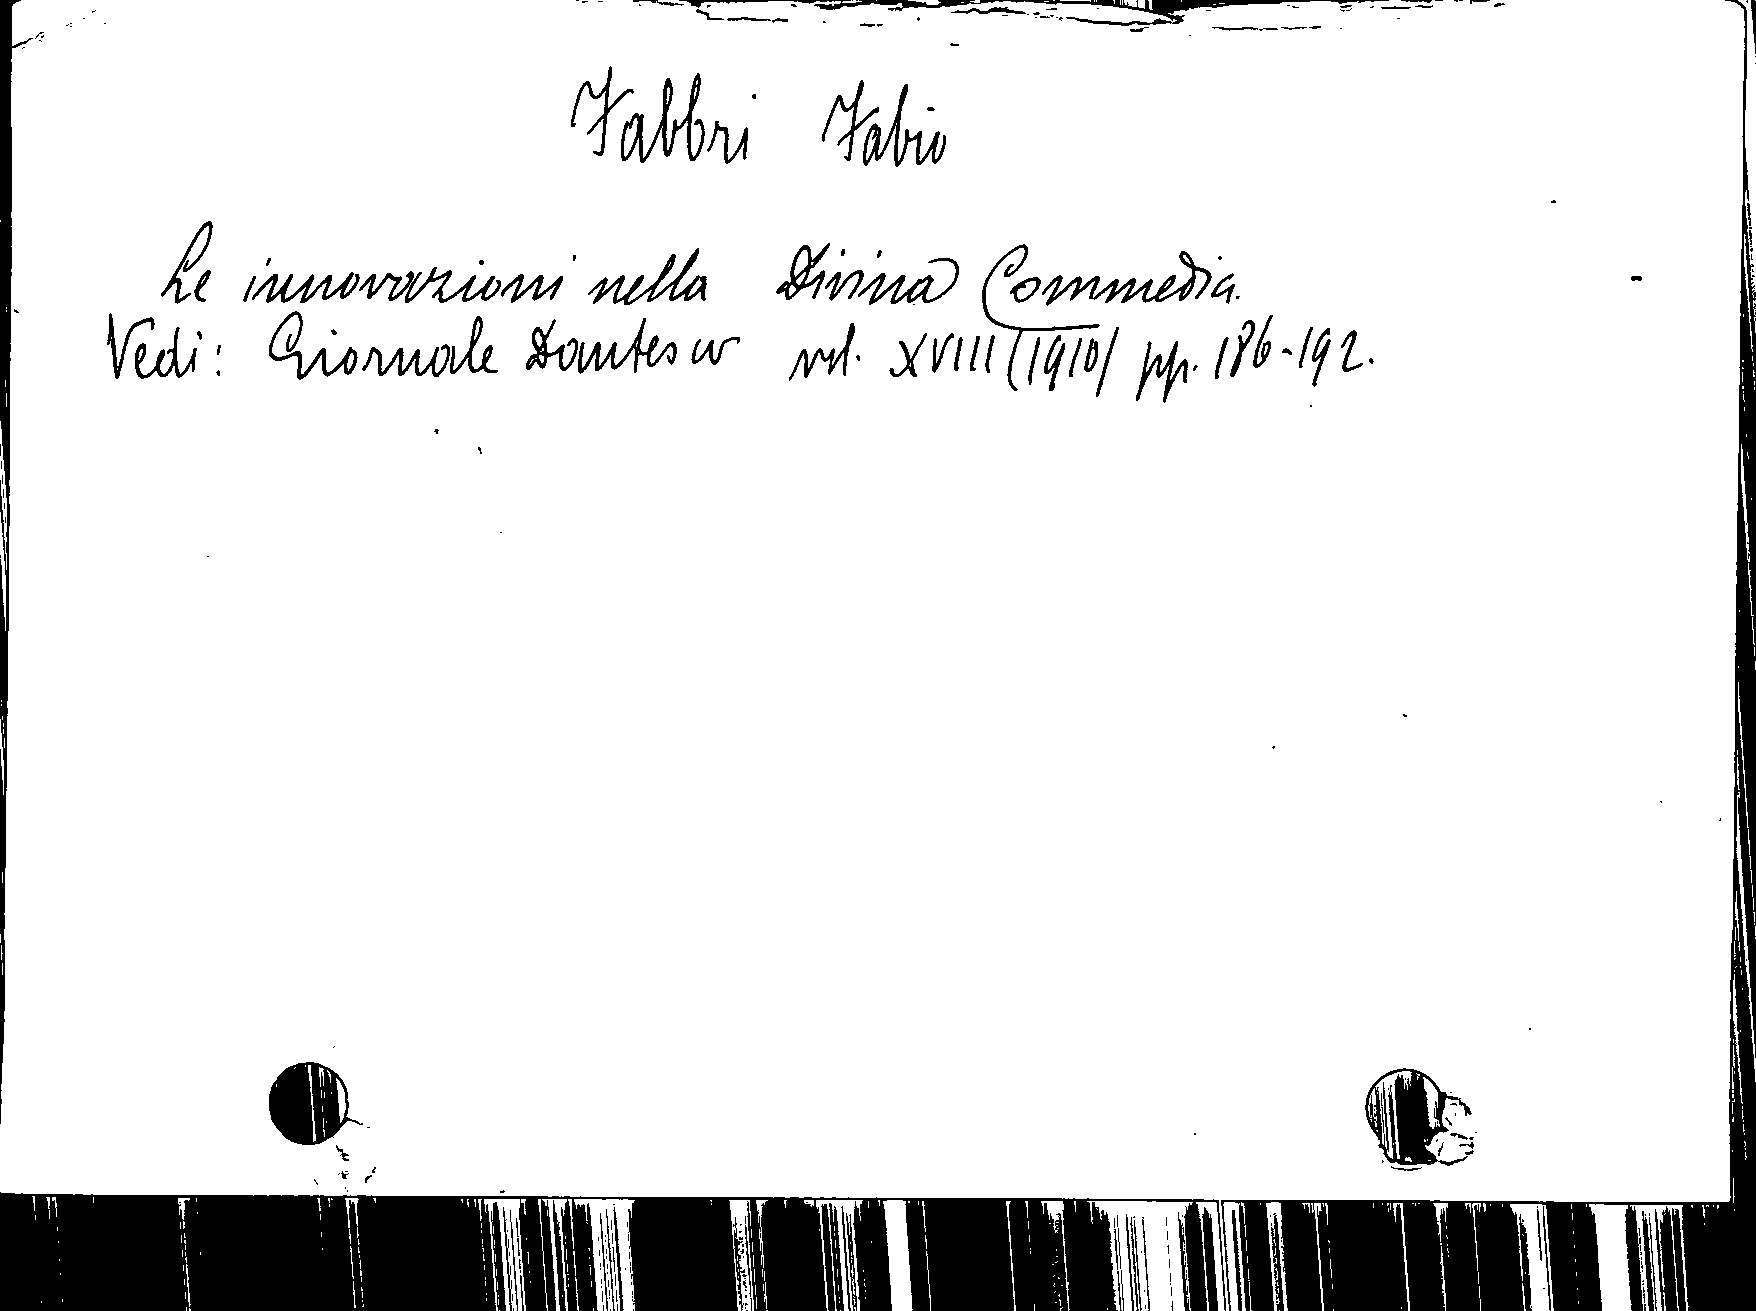 Fabbri Fabio
Le innovazioni nella Divina Commedia.
Vedi: Giornale Dantesco vol. XVIII (1910) pp. 186-192.